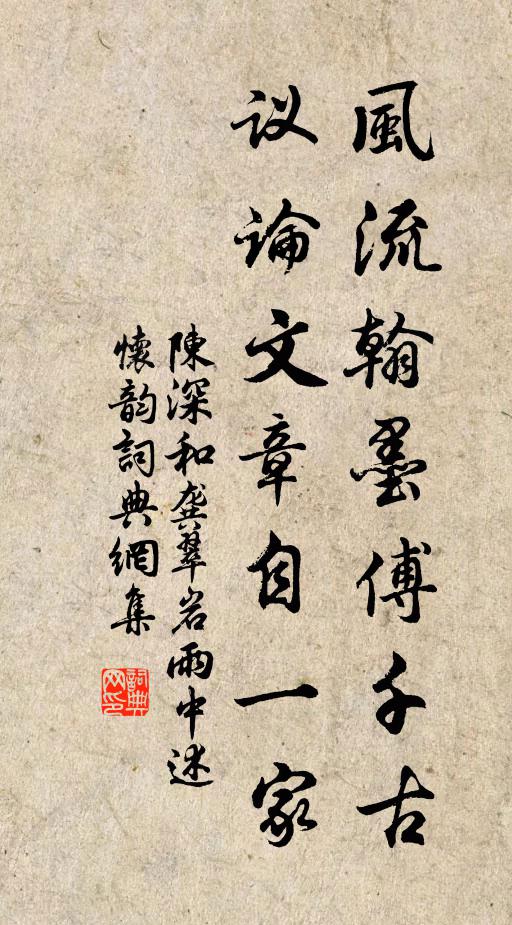 風流翰墨傅千古
议論文章自一家
陳深和龔翠岩雨中述
懷韵詞典網集
詞典
网印